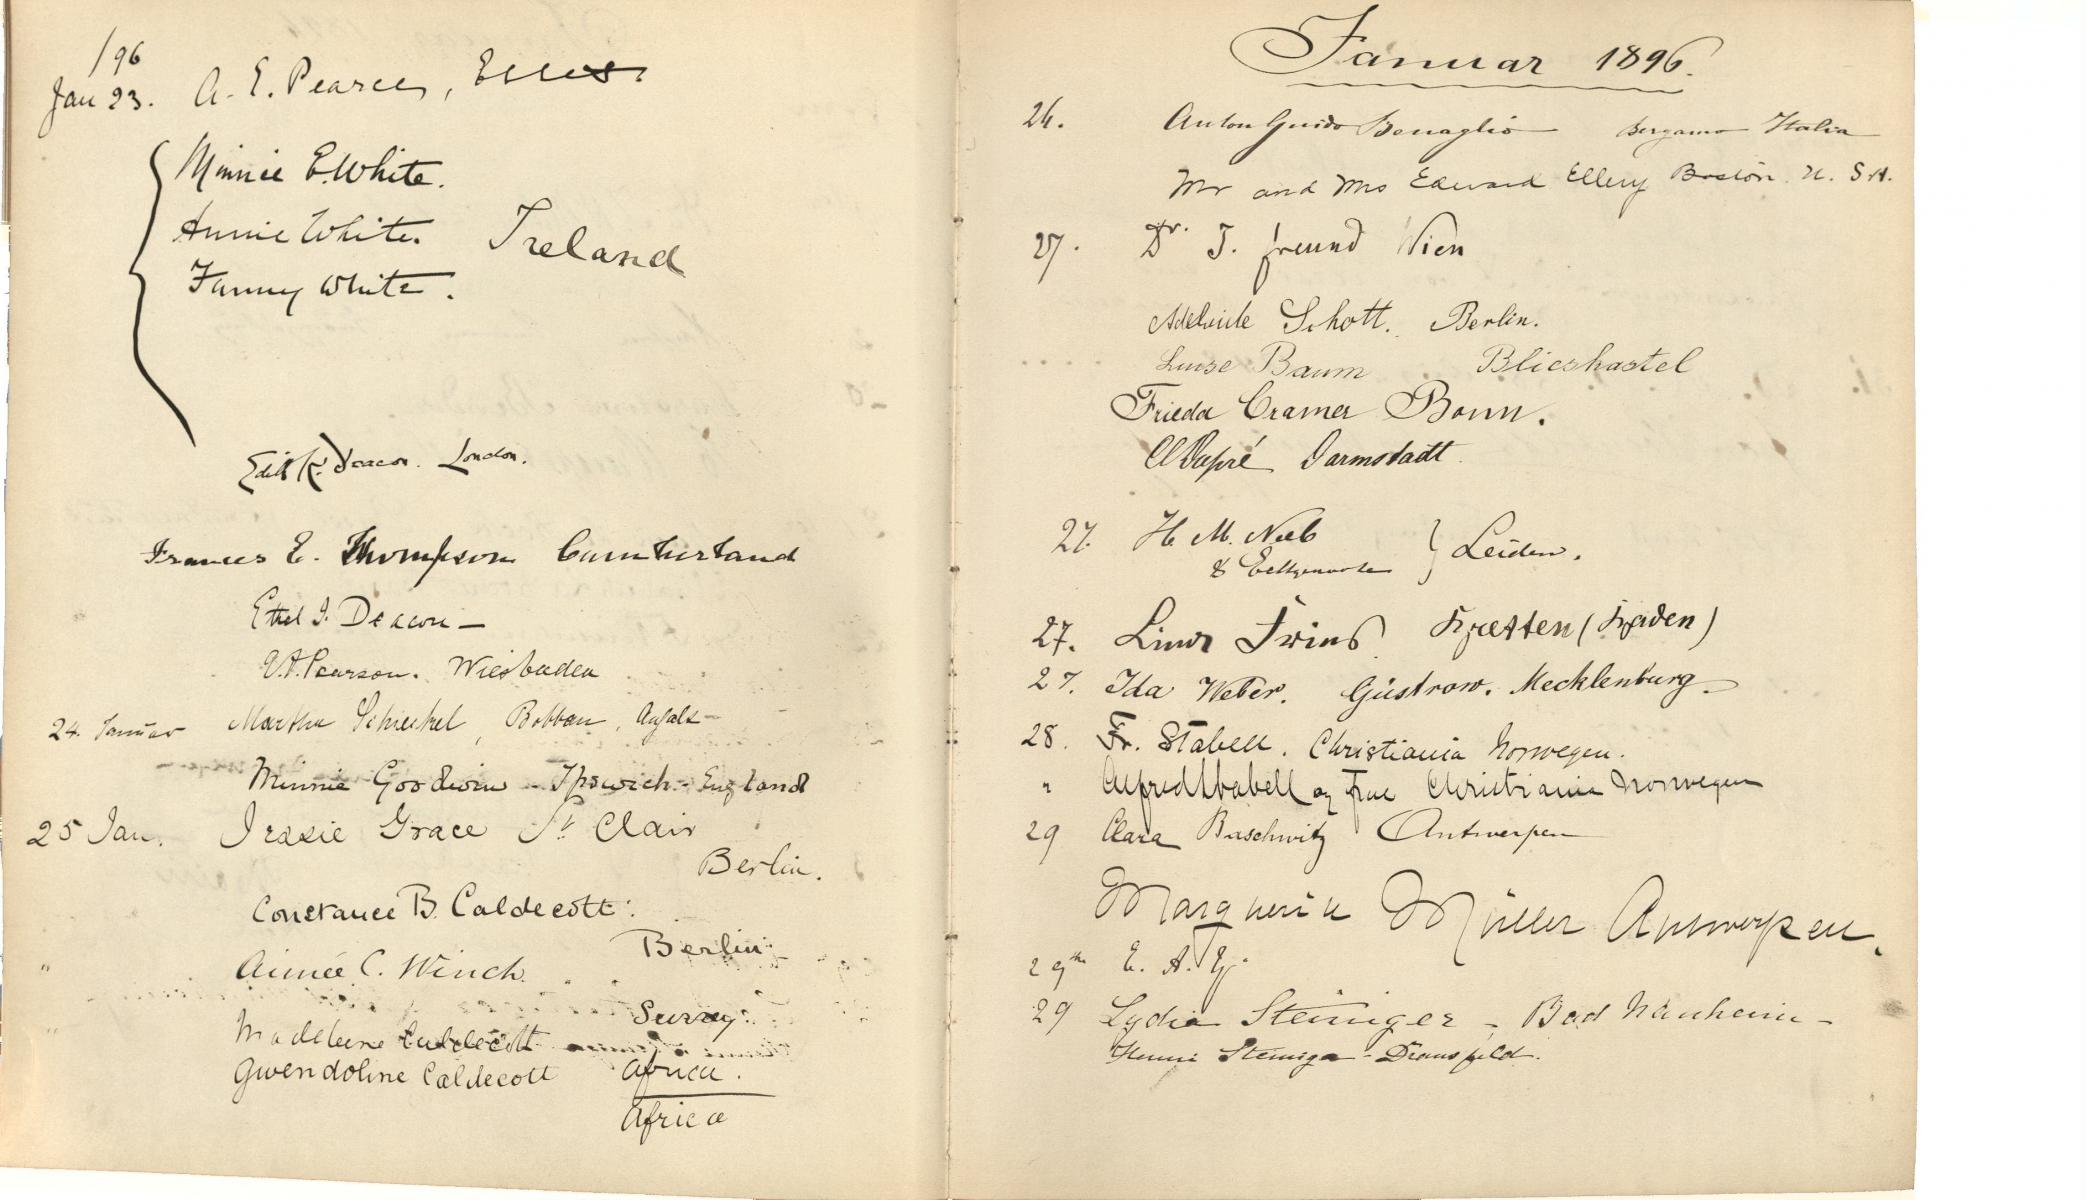 /96
Jan 23. A. E. Pearce,
Minnie E. White.
Annie White.
Fanny White.
Ireland
Edith K. Deacon. London.
Frances E. Thompson Cumberland
Ethel I. Deacon —
Pearson. Wiesbaden
24. Januar Martha
Minnie Goodwin - Ipswich - England
25 Jan. Jessie Grace St Clair
Berlin.
Constance B. Caldecott.
Berlin
" Aimée C. Winch.
Surrey.
" Madeleine Caldecott
Africa.
Gwendoline Caldecott
Africa
Januar 1896.
26. Anton Guido Benaglio Bergamo Italia
Mr and Mrs Edward Ellery Boston. U. S. A.
27. Dr. J. Freund Wien
Adelaide Schott. Berlin.
Luise Baum Blieskastel
Frieda Cramer Bonn.
Darmstadt
27. H. M.
& Echtgenoote } Leiden.
27.
27. Ida Weber. Güstrow. Mecklenburg.
28. Fr. Stabell. Christiania Norwegen.
" Alfred Stabell og Frue Christiania Norwegen
29 Clara Baschwitz Antwerpen
Marguerite Müller Antwerpen.
29th E. A. G.
29 Lydia Steiniger - Bad Nauheim -
Henni Steiniger - Dransfeld.